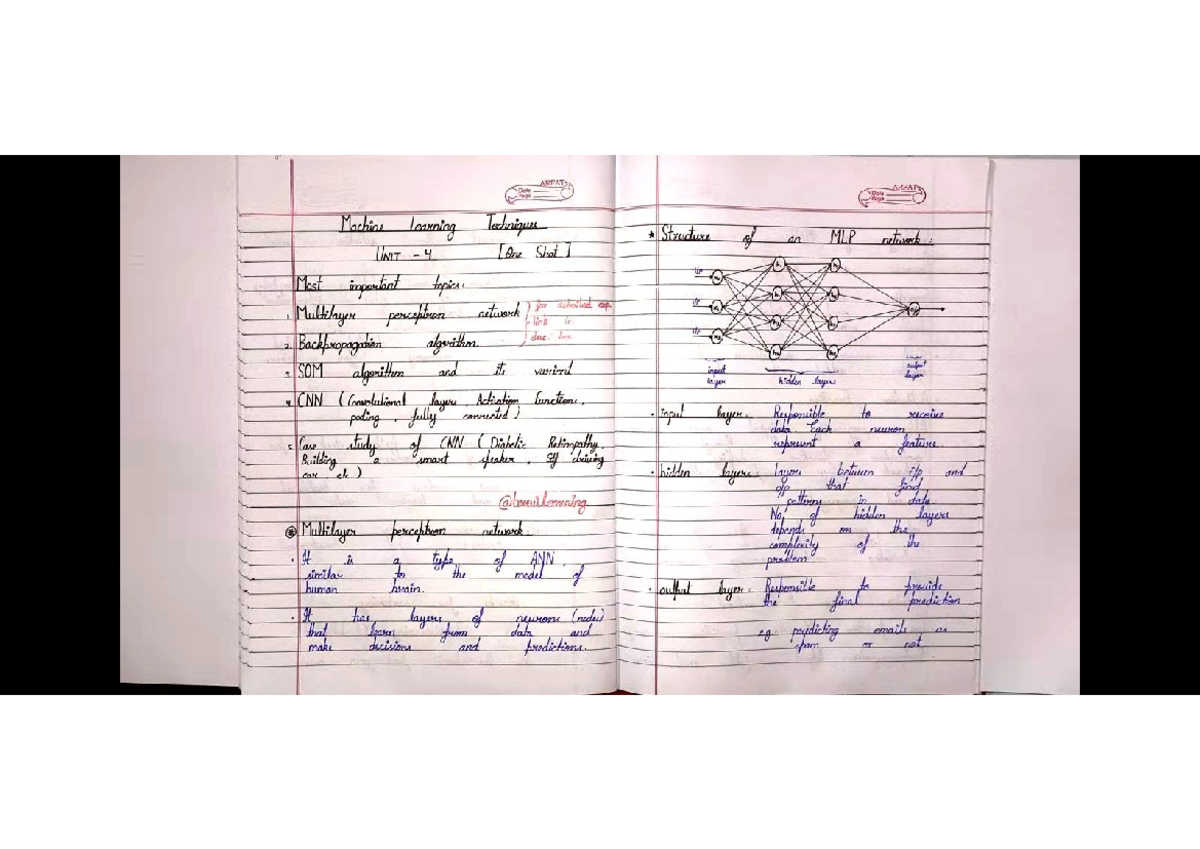 ARPAT
Date
Page
Machine Learning Techniques
UNIT - 4 [One Shot]
Most important topics:
1. Multilayer perceptron network
2. Backpropagation algorithm.
} for detailed exp.
link in
desc. box
3. SOM algorithm and its
4. CNN (Convolutional layers, Activation functions,
pooling, fully connected)
5. Case study of CNN (Diabetic
Building a smart speaker, Self driving
car etc)
Multilayer perceptron network:
. It is a type of ANN,
similar to the model of
human brain.
. It has layers of neurons (nodes)
that learn from data and
make decisions and predictions.
ARPAT
Date
Page
* Structure of an MLP network:
input
layer
hidden layers
output
layer
. input layer: Responsible to receive
data. Each neuron
represent a feature.
. hidden layers: layers between i/p and
o/p that find
patterns in data
No. of hidden layers
depends on the
complexity of the
problem
. output layer: Responsible to provide
the final prediction
e.g. predicting emails as
spam or not.